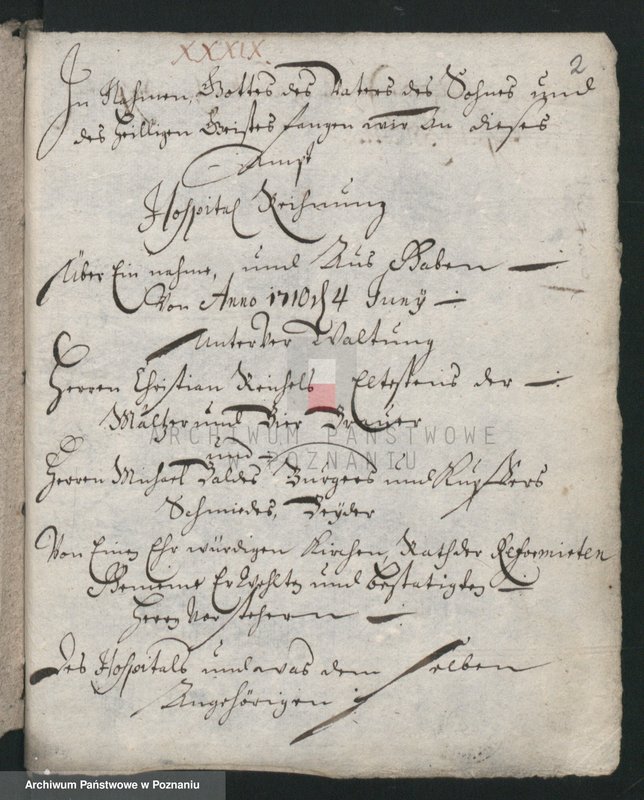 XXXIX
2
In Nahmen, Gottes des Vaters des Sohnes und
des Heilligen Geistes fangen wir An dieses
Ampt
Hospital Reihnung
Über Ein nahme, und Aus Gaben
Von Anno 1710 d 4 Juny
Unter Ver Waltung
Herren Christian Reichels Eltestens der
Mältzer und Bier Brauer
und
Herren Michael Baldes Burgers und Kupffers
Schmiedes, Beyder
Von Einen Ehr würdigen Kirchen, Rath der Reformirten
Gemeine Erwehlten und bestätigten
Herrn Vor stehern
Des Hospitals und was dem selben
Angehörigen
ARCHIWUM PAŃSTWOWE
W POZNANIU
Archiwum Państwowe w Poznaniu